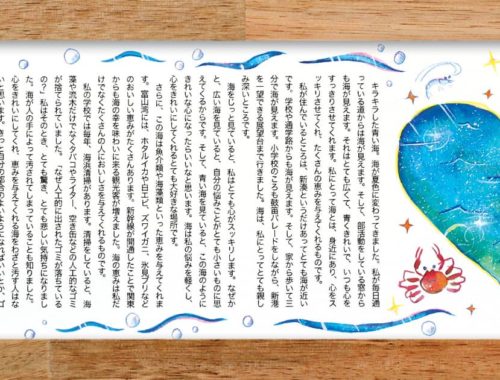 キラキラした青い海。海が夏色に変わってきました。私が毎日通
っている道からは海が見えます。そして、部活動をしている窓から
も海が見えます。それはとても広くて、青くきれいで、いつも心を
すっきりさせてくれます。私にとって海とは、身近にあり、心をス
ッキリさせてくれ、たくさんの恵みを与えてくれるものです。
私が住んでいるところは、新湊というだけあってとても海が近い
です。学校や通学路からも海が見えます。そして、家から歩いて三
分で海が見えます。小学校のころも鼓笛パレードをしながら、新港
を一望できる展望台まで行きました。海は、私にとってとても親し
み深いところです。
海をじっと見ていると、私はとても心がスッキリします。なぜか
と、広い海を見ていると、自分の悩みごとがとても小さいものに思
えてくるからです。そして、青い海を見ていると、この海のように
きれいな心になったらいいなと思います。海は私の悩みを軽くし、
心をきれいにしてくれるとても大好きな場所です。
さらに、この海は魚介類や海藻類といった恵みを与えてくれま
す。富山湾には、ホタルイカや白エビ、ズワイガニ、氷見ブリなど
のおいしい恵みがたくさんあります。新幹線が開通したことで関東
からも海の幸を味わいに来る観光客が増えました。海の恵みは私だ
けでなくたくさんの人においしさを与えてくれるものです。
私の学校では毎年、海浜清掃があります。清掃をしていると、海
藻や流木だけでなくタバコやライター、空き缶などの人工的なゴミ
が捨てられていました。「なぜ人工的に出されたゴミが落ちている
の?」私はそのとき、とても驚き、とても悲しい気持ちになりまし
た。海が人の手によって汚されてしまっていることも知りました。
心をきれいにしてくれ、恵みを与えてくれる海をわざと汚す人はな
いと思います。きっと自分の都合のよいようになればいいとか、ゴ